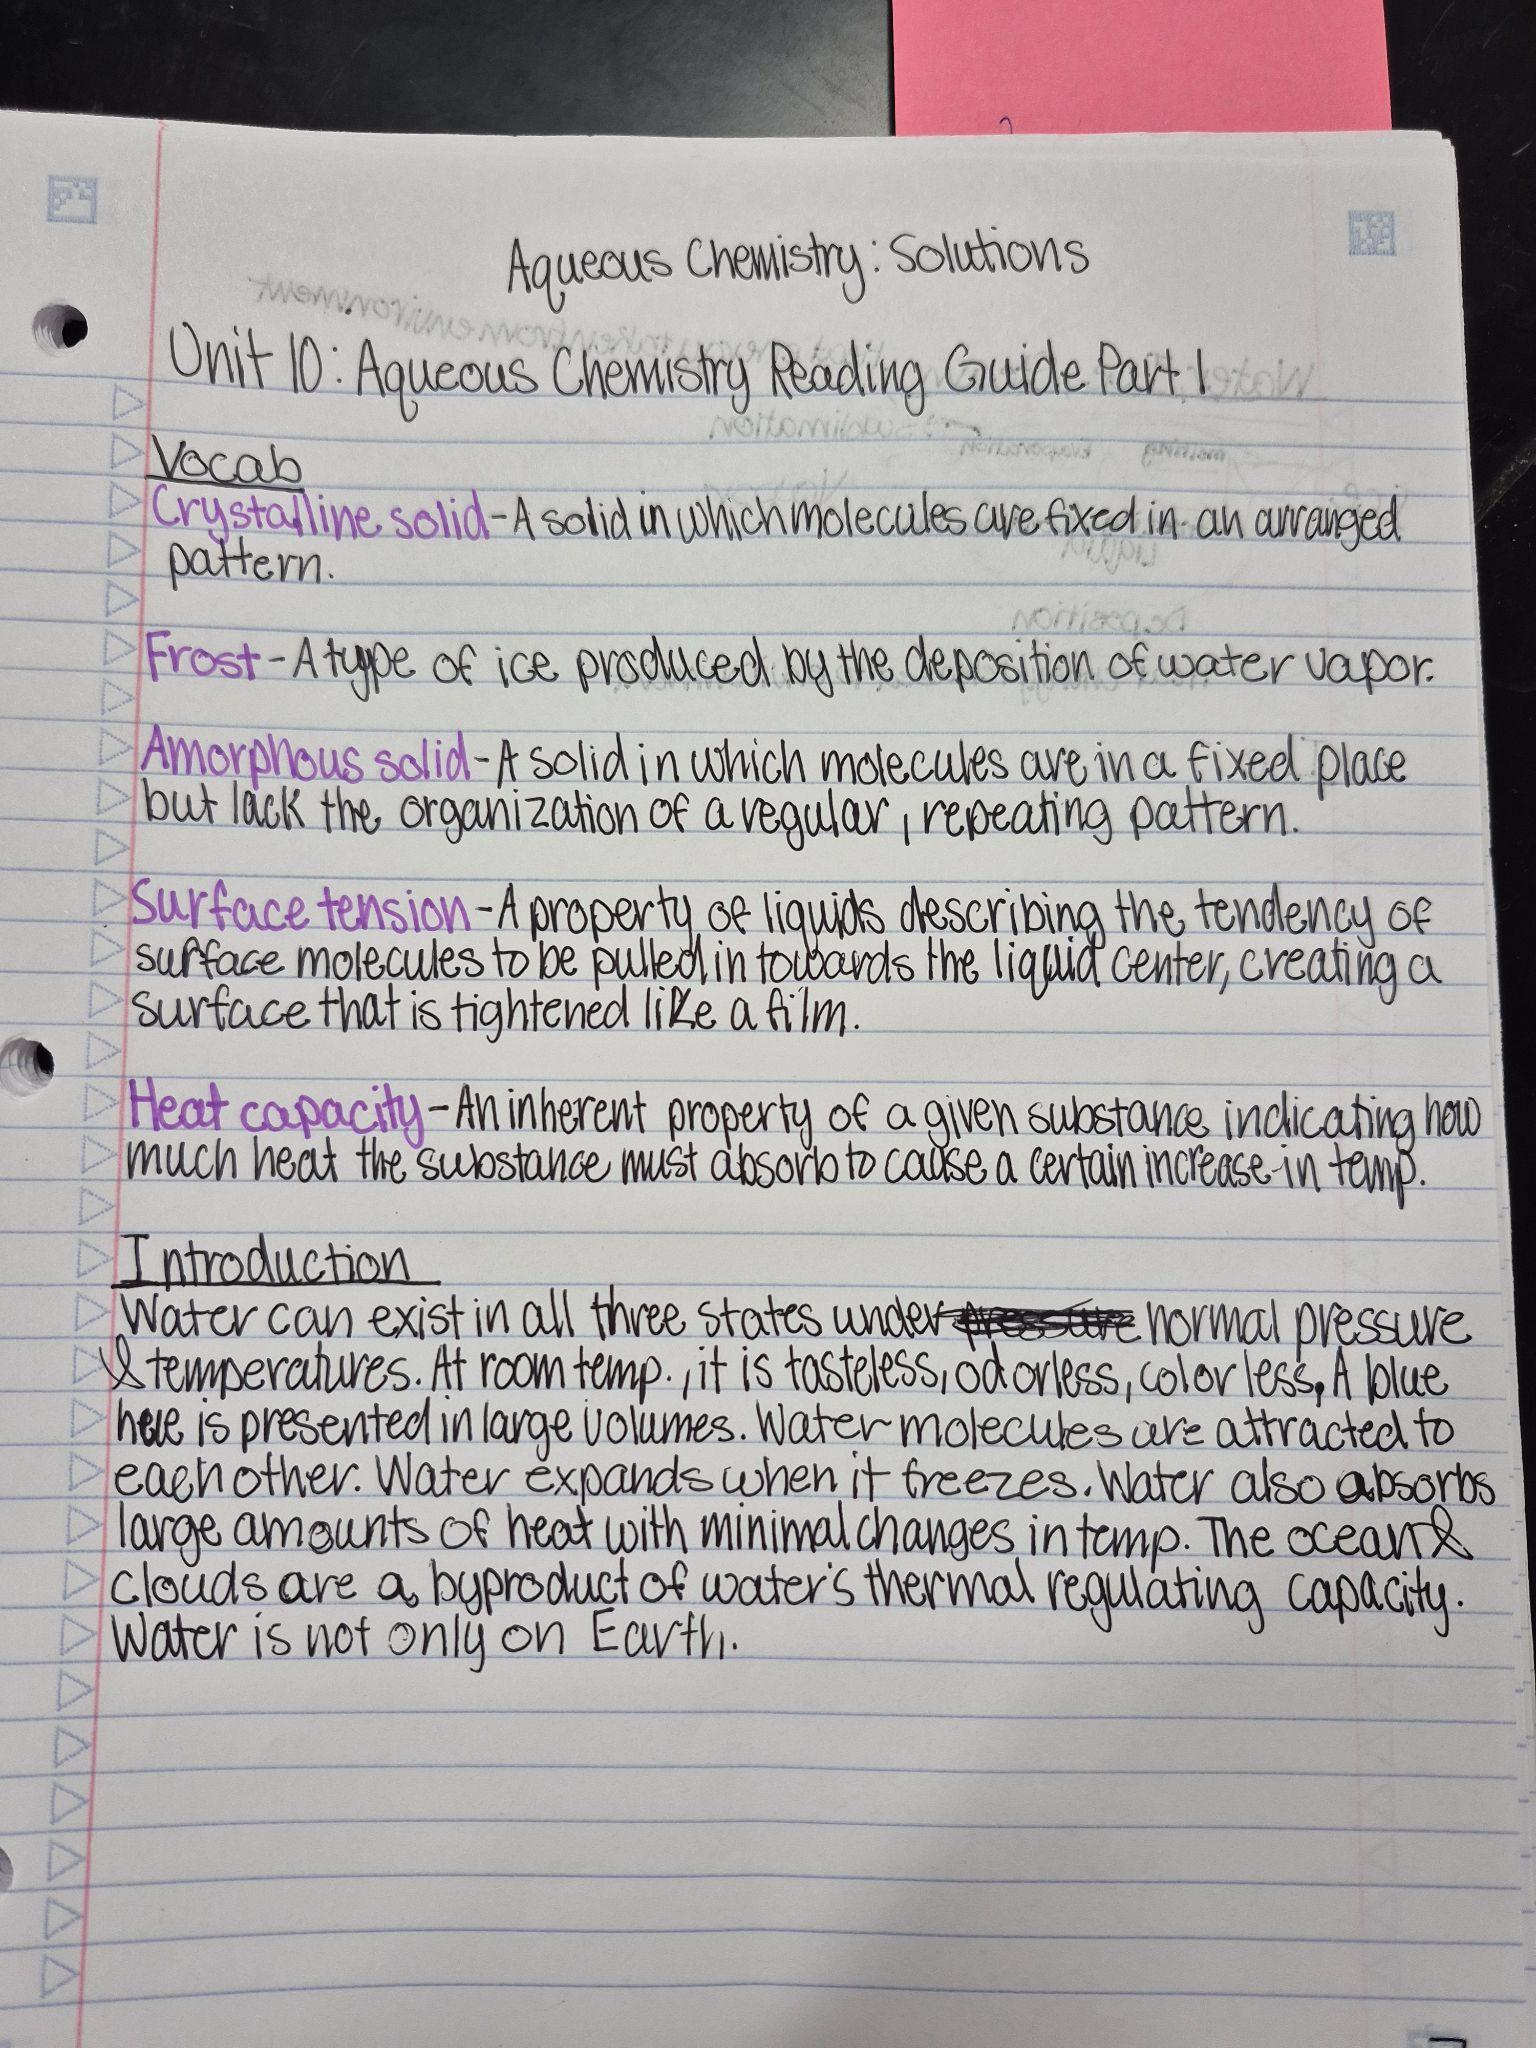 Aqueous Chemistry: Solutions
Unit 10: Aqueous Chemistry Reading Guide Part 1
Vocab
Crystalline solid - A solid in which molecules are fixed in an arranged
pattern.
Frost - A type of ice produced by the deposition of water vapor.
Amorphous solid - A solid in which molecules are in a fixed place
but lack the organization of a regular, repeating pattern.
Surface tension - A property of liquids describing the tendency of
surface molecules to be pulled in towards the liquid center, creating a
surface that is tightened like a film.
Heat capacity - An inherent property of a given substance indicating how
much heat the substance must absorb to cause a certain increase in temp.
Introduction
Water can exist in all three states under normal pressure
& temperatures. At room temp., it is tasteless, odorless, colorless, A blue
hue is presented in large volumes. Water molecules are attracted to
each other. Water expands when it freezes. Water also absorbs
large amounts of heat with minimal changes in temp. The ocean &
clouds are a byproduct of water's thermal regulating capacity.
Water is not only on Earth.